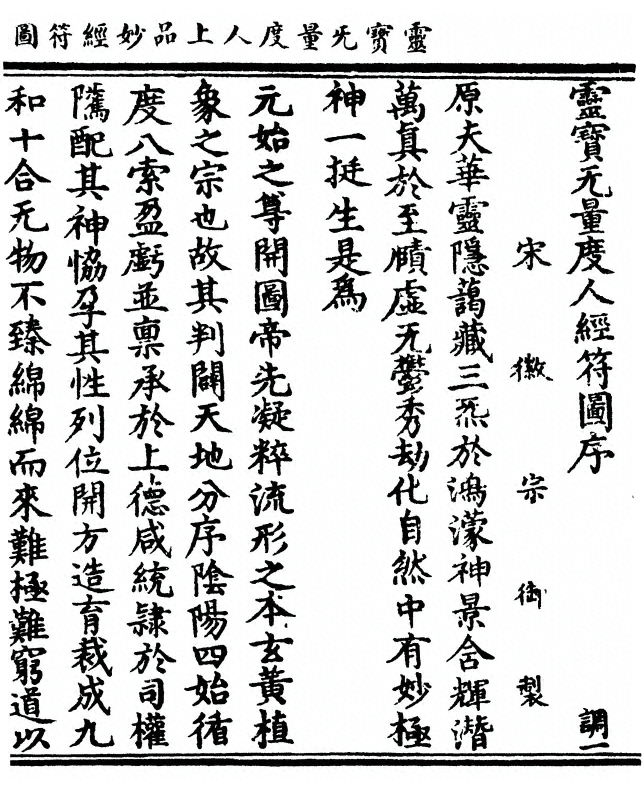 靈寶旡量度人上品妙經符圖
靈寶无量度人經符圖序
調一
宋徽宗御製
原夫華靈隱藹藏三炁於鴻濛神景含輝潛
萬真於至賾虛无鬱秀劫化自然中有妙極
神一挺生是爲
元始之尊開圖帝先凝粹流形之本玄黃植
象之宗也故其判闢天地分序陰陽四始循
度八索盈虧並稟承於上德咸統隸於司權
隲配其神恊孕其性列位開方造育裁成九
和十合无物不臻綿綿而來難極難窮道以